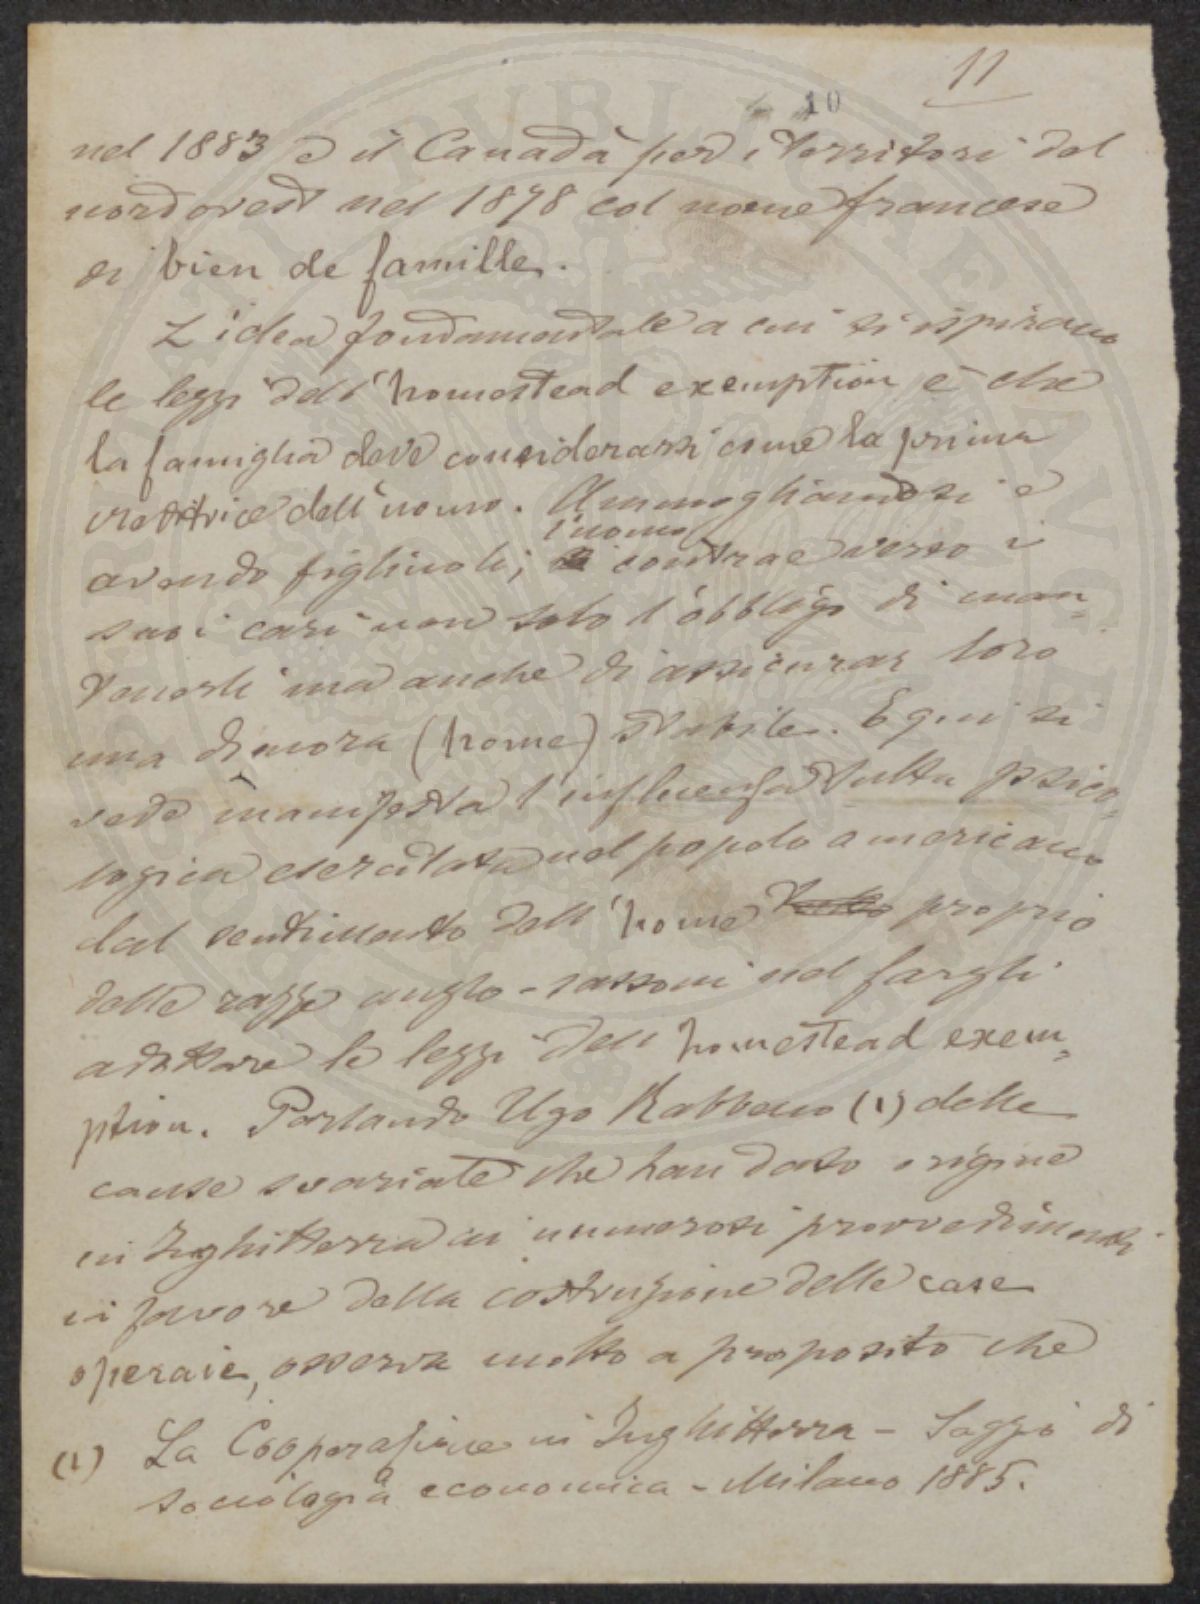 11
10
nel 1883 e il Canadà per i territori del
nord ovest nel 1878 col nome francese
di bien de famille.
L'idea fondamentale a cui si ispirano
le leggi dell'homestead exemption è che
la famiglia deve considerarsi come la prima
creditrice dell'uomo. Ammogliandosi e
avendo figliuoli, l'uomo contrae verso i
suoi cari non solo l'obbligo di man-
tenerli ma anche di assicurar loro
una dimora (home) stabile. E qui si
vede manifesta l'influenza tutta psico-
logica esercitata nel popolo americano
dal sentimento dell'home proprio
delle razze anglo-sassoni nel fargli
adottare le leggi dell'homestead exem-
ption. Parlando Ugo Rabbeno (1) delle
cause svariate che han dato origine
in Inghilterra ai numerosi provvedimenti
in favore della costruzione delle case
operaie, osserva molto a proposito che
(1) La Cooperazione in Inghilterra - Saggio di
sociologia economica - Milano 1885.